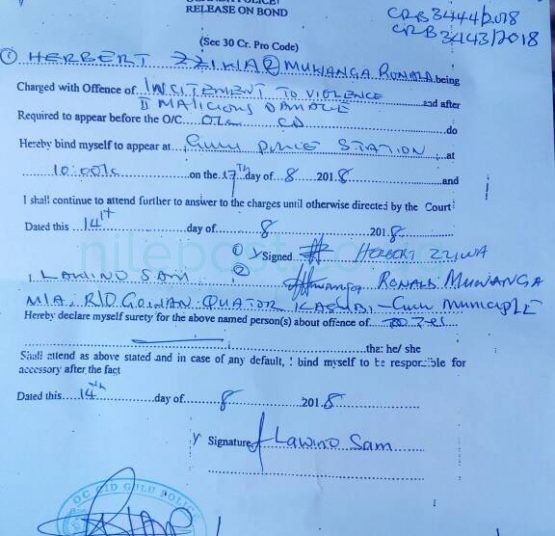 RELEASE ON BOND
CRB 3444/2018
CRB 3443/2018
(Sec 30 Cr. Pro Code)
① HERBERT ZZIWA ② MUWANGA RONALD being
Charged with Offence of INCITEMENT TO VIOLENCE
II MALICIOUS DAMAGE and after
Required to appear before the O/C CID do
Hereby bind myself to appear at GULU POLICE STATION at
10:00 on the 17th day of 8 2018 and
I shall continue to attend further to answer to the charges until otherwise directed by the Court
Dated this 14th day of 8 2018
① Signed HERBERT ZZIWA
②
RONALD MUWANGA
I LAWINO SAM
M/A, R/O KASUBI - GULU MUNICIPLE
Hereby declare myself surety for the above named person(s) about offence of
the: he/ she
Shall attend as above stated and in case of any default, I bind myself to be responsible for
accessory after the fact
Dated this 14th day of 8 2018
Signature Lawino Sam
OC CID GULU POLICE
nilepost